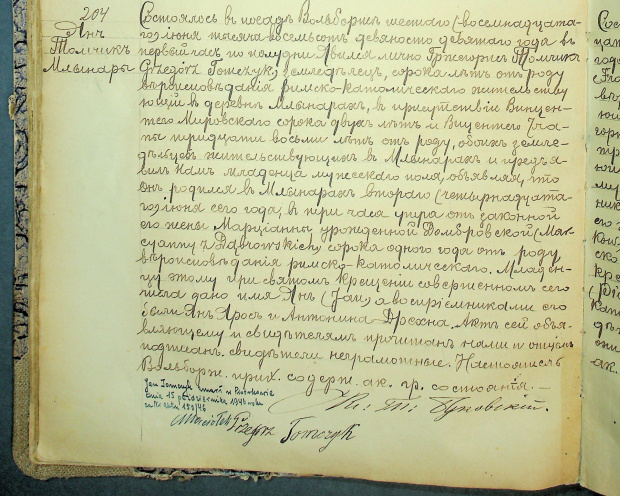 204
Янъ
Томчикъ
Млынары
Состоялось въ посадѣ Вольборжѣ шестаго (восемнадцата-
го) іюня тысяча восемьсотъ девяносто девятаго года въ
первый часъ по полудни. Явился лично Гржегоржъ Томчикъ
(Grzegórz Tomczyk), земледѣлецъ, сорока лѣтъ отъ роду
вѣроисповѣданія римско-католическаго жительству
ющій въ деревнѣ Млынарахъ, въ присутствіи Винцен-
тего Мировскаго сорока двухъ лѣтъ и Вицентего
тридцати восьми лѣтъ отъ роду, обоихъ земле-
дѣльцевъ жительствующихъ въ Млынарахъ и предъя-
вилъ намъ младенца мужескаго пола, объявляя, что
онъ родился въ Млынарахъ втораго (четырнадцата-
го) іюня сего года, въ три часа утра отъ законной
его жены Марціанны урожденной Домбровской (Mar-
cyanny z Dąbrowskich) сорока одного года отъ роду
вѣроисповѣданія римско-католическаго. Младен-
цу этому при святомъ крещеніи совершенномъ сего
числа дано имя Янъ (Jan), а воспріемниками его
были Янъ Яросъ и Антонина Дрехна. Актъ сей объя-
вляющему и свидѣтелямъ прочитанъ нами и отцемъ
подписанъ, свидѣтели неграмотные. Настоятель
Вольборж. прих. содерж. ак. гр. состоянія. —
Jan Tomczyk zmarł w
dnia 15 października 1946 roku
akt 159/46
Grzegórz Tomczyk